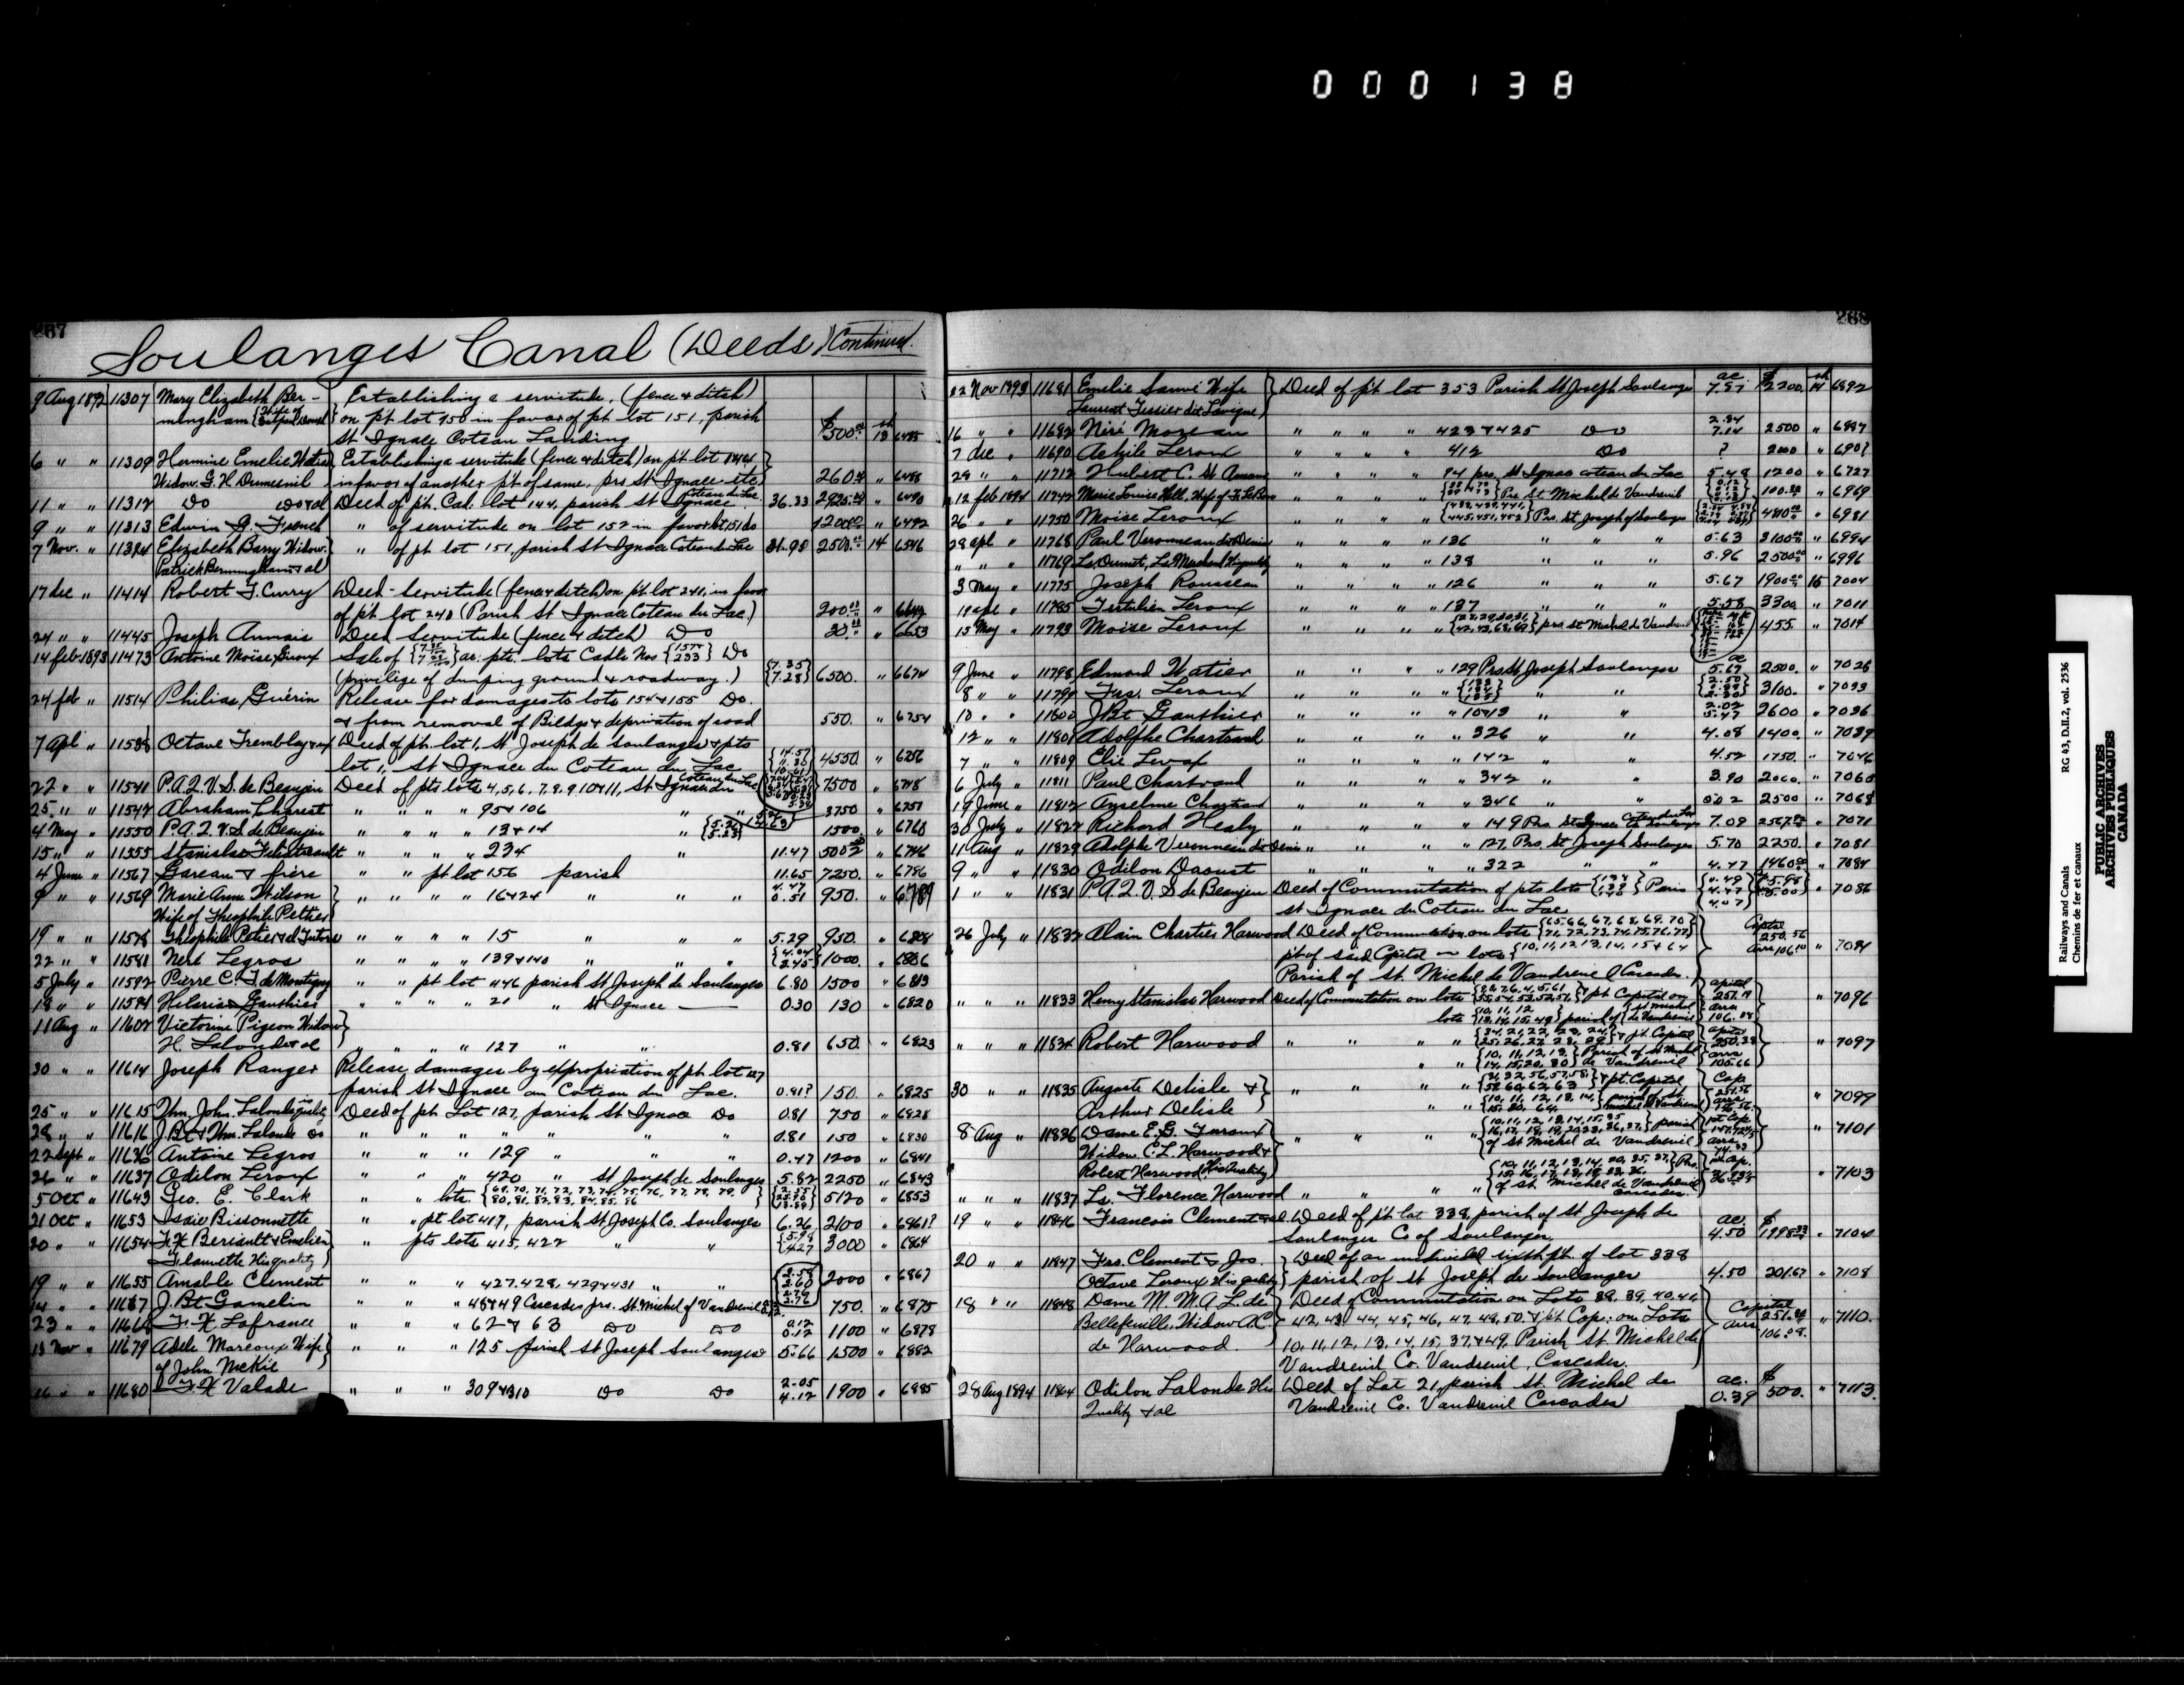 000138
267
Soulanges Canal (Deeds) Continued.
9 Aug 1892 11307 Mary Elizabeth Ber- Establishing a servitude, (fence & ditch)
mingham on pt lot 150 in favor of pt lot 151, parish
St Ignace Coteau Landing $500.00 13 6485
6 " " 11309 Hermine Emelie Establishing a servitude (fence & ditch) on pt lot 144
Widow G. H Dumesnil in favor of another pt of same, prs St Ignace etc 260.00 " 6488
11 " " 11312 Do Do & al Deed of pt. Cal. lot 144, parish St Ignace Coteau du Lac 36.33 2925.00 " 6490
9 " " 11313 Edwin G. French " of servitude on lot 152 in favor lot 151 do 1200.00 " 6492
7 Nov. " 11384 Elizabeth Barry Widow " of pt lot 151, parish St Ignace Coteau du Lac 31.98 2500.00 14 6546
Patrick Bermingham & al
17 dec " 11414 Robert F. Curry Deed - Servitude (fence & ditch) on pt lot 241, in favor
of pt lot 240 (Parish St Ignace Coteau du Lac) 200.00 "
24 " " 11445 Joseph Annais Deed Servitude (fence & ditch) Do 30.00 " 6653
14 feb 1893 11473 Antoine Moïse Giroux Sale of ar. pts. lots Cadle Nos 233 Do
(privilege of dumping ground & roadway.) 7.35 7.28 6500. " 6674
24 feb " 11514 Philias Guérin Release for damages to lots 154 & 155 Do.
& from removal of Bildgs & deprivation of road 550. " 6754
7 Apl " 11538 Octave Tremblay & ux Deed of pt lot 1, St Joseph de Soulanges & pts
lot 1, St Ignace du Coteau du Lac 4550. " 6256
22 " " 11541 P.A.Q.V.S. de Beaujeu Deed of pts lots 4, 5, 6, 7, 8, 9, 10 & 11, St Ignace du Coteau du Lac 7500 " 6748
25 " " 11547 Abraham Charest " " " " 95 & 106 " 3750 " 6751
4 May " 11550 P.A.Q.V.S. de Beaujeu " " " " 13 & 14 " 1500. " 6760
15 " " 11555 Stanislas Filiatrault " " " " 234 " 11.47 " 6776
4 June " 11567 Gareau & frère " " pt lot 156 parish 11.65 7250. " 6786
9 " " 11569 Marie Anne Wilson " " " " 16 & 24 " " " 4.47 0.51 950. " 6789
Wife of Theophile Peltier
19 " " 11578 Theophile Peltier & al Tutors " " " " 15 " " " 5.29 950. " 6804
22 " " 11581 Neré Legros " " " " 139 & 140 " " " 4.04 2.45 1000. " 6806
5 July " 11592 Pierre C. F. de Montigny " " pt lot 446 parish St Joseph de Soulanges 6.80 1500 " 6813
18 " " 11594 Hilaris Gauthier " " " " 21 " St Ignace — 0.30 130 " 6820
11 Aug " 11602 Victorine Pigeon Widow
H. Lalonde & al " " " " 127 " " 0.81 650. " 6823
30 " " 11614 Joseph Ranger Release damages by expropriation of pt lot 127
parish St Ignace du Coteau du Lac. 0.81? 150. " 6825
25 " " 11615 Wm. John Lalonde Deed of pt Lot 127, parish St Ignace Do 0.81 750 " 6828
28 " " 11616 J. Bt & Wm. Lalonde Do " " " " " " 0.81 150 " 6830
22 Sept " 11636 Antoine Legros " " " 129 " " 0.47 1200 " 6841
26 " " 11637 Odilon Leroux " " " 420 " St Joseph de Soulanges 5.82 2250 " 6843
5 Oct " 11643 Geo. E. Clark " " lots. 69, 70, 71, 72, 73, 74, 75, 76, 77, 78, 79, 80, 81, 82, 83, 84, 85, 86 5120 " 6853
21 Oct " 11653 Isaie Bissonnette " " pt lot 417, parish St Joseph Co. Soulanges 6.26 2100 " 6861?
20 " " 11654 F. X Beriault & Emelien " pts lots 415, 422 " " 5.98 4.27 3000 " 6864
Filanvette His quality
19 " " 11655 Amable Clement " " " 427, 428, 429 & 431 " " 2000 " 6867
14 " " 11667 J. Bt Gamelin " " " 48 & 49 Cascades prs. St. Michel of Vaudreuil 750. " 6875
23 " " 11668 F. X. Lafrance " " " 62 & 63 Do Do 0.12 0.12 1100 " 6878
13 Nov " 11679 Adele Marcoux Wife " " " 125 parish St Joseph Soulanges 5.66 1500 " 6882
of John McKie
16 " " 11680 F. X Valade " " " 309 & 310 Do Do 2.05 4.12 1900 " 6885
268
22 Nov 1893 11681 Emelie Sauvé Wife Deed of pt lot 353 Parish St Joseph Soulanges ac 7.57 $2200. 14 6892
Laurent Tessier dit Lavigne
16 " " 11682 Neré Moreau " " " " 423 & 425 Do 2.34 7.14 2500 " 6897
7 dec " 11690 Achile Leroux " " " " 412 Do ? 2000 " 690?
29 " " 11712 Hubert C. St Amand " " " " 94 prs. St Ignace coteau du Lac 5.48 1200 " 6727
12 feb 1894 11742 Marie Louise Hall, Wife of " " " " Prs St Michel de Vaudreuil 100.00 " 6969
26 " " 11750 Moise Leroux " " " " 438, 439, 441, 445, 451, 452 Prs. St. Joseph of Soulanges 4800 " 6981
28 apl " 11768 Paul Veronneau dit Denis " " " " 136 " " " 5.63 3100.00 " 6994
" " " 11769 Ls. Dumit, " " " " 138 " " " 5.96 2500.00 " 6996
3 May " 11775 Joseph Rousseau " " " " 126 " " " 5.67 1900.00 15 7004
19 apl " 11785 Tertulien Leroux " " " " 137 " " " 5.58 3300. " 7011
15 May " 11793 Moïse Leroux " " " " 28, 29, 30, 31, 42, 43, 68, 69 prs. st Michel de Vaudreuil 455. " 7014
9 June " 11798 Edmond Watier " " " " 129 Prs. St Joseph Soulanges 5.67 2500. " 7026
8 " " 11799 Frs. Leroux " " " " 133 134 135 " " 3100. " 7033
13 " " 11800 J Bt Gauthier " " " 10 & 13 " " 2.02 5.47 2600 " 7036
12 " " 11801 Adolphe Chartrand " " " " 326 " " 4.08 1400. " 7039
7 " " 11809 Elie Levac " " " " 142 " " 4.52 1750. " 7046
6 July " 11811 Paul Chartrand " " " " 342 " " 3.90 2060. " 7060
19 June " 11812 Anselme Chartrand " " " " 346 " " 2500 " 7068
30 July " 11822 Richard Healy " " " " 149 Prs. St Ignace Coteau du Lac Co Soulanges 7.09 2567.00 " 7071
11 Aug " 11829 Adolphe Veronneau dit Denis " " " " 127, Prs. St Joseph Soulanges 5.70 2250. " 7081
9 " " 11830 Odilon Daoust " " " " 322 " " 4.47 1460.00 " 7084
1 " " 11831 P.A.Q.V.S de Beaujeu Deed of Commutation of pts lots Paris 7086
St Ignace du Coteau du Lac
26 July " 11832 Alain Chartier Harwood Deed of Commutation on lots 65, 66, 67, 68, 69, 70 71, 72, 73, 74, 75, 76, 77 Capital 250.56
pt of said Capital on lots 10, 11, 12, 13, 14, 15 & 64 Arrs 106.10 " 7094
Parish of St. Michel de Vaudreuil Cascades.
" " " 11833 Henry Stanislas Harwood Deed of Commutation on lots & pt Capital on " 7096
lots 10, 11, 12 13, 14, 15, 49 parish of St Michel de Vaudreuil
" " " 11834 Robert Harwood " " " " & pt Capital " 7097
10, 11, 12, 13, 14, 15, 20, 80 Parish of St Michel de Vaudreuil
30 " " 11835 Auguste Delisle & " " " " & pt. Capital Cap
Arthur Delisle " " " parish of St Michel de Vaudreuil " 7099
8 Aug " 11836 Dame E. G. " " " " parish " 7101
Widow C. L. Harwood & of St Michel de Vaudreuil
Robert Harwood His Quality
" " " 11837 Ls. Florence Harwood " " " " of St. Michel de Vaudreuil Cascades. " 7103
19 " " 11846 Francois Clement & al. Deed of pt lot 338, parish of St Joseph de
Soulanges Co of Soulanges. ac. 4.50 $ 1998.33 " 7104
20 " " 11847 Frs. Clement & Jos. Deed of an undivided sixth pt. of lot 338
Octave Leroux His quality parish of St Joseph de Soulanges 4.50 201.67 " 7108
18 " " 11848 Dame M. M. A. L. de Deed of Commutation on Lots 38, 39, 40, 41,
Bellefeuille, Widow A.C. 42, 43, 44, 45, 46, 47, 48, 50 & pt Cap: on Lots Capital " 7110.
de Harwood. 10, 11, 12, 13, 14, 15, 37 & 49, Parish St Michel de arrs 106.08.
Vaudreuil Co. Vaudreuil, Cascades.
28 Aug 1894 11864 Odilon Lalonde His Deed of Lot 21, parish St. Michel de ac. $
Quality & al Vaudreuil Co. Vaudreuil Cascades 0.39 500. " 7113.
Railways and Canals RG 43, D.II.2, vol. 2536
Chemins de fer et canaux
PUBLIC ARCHIVES
ARCHIVES PUBLIQUES
CANADA